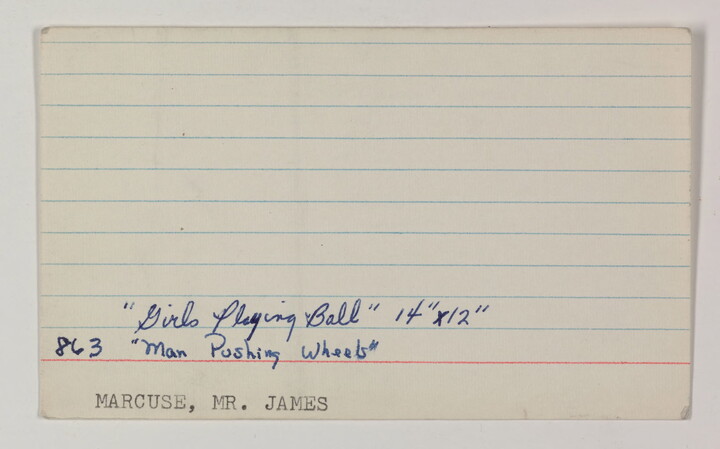 "Girls Playing Ball" 14"x12"
863 "Man Pushing Wheels"
MARCUSE, MR. JAMES